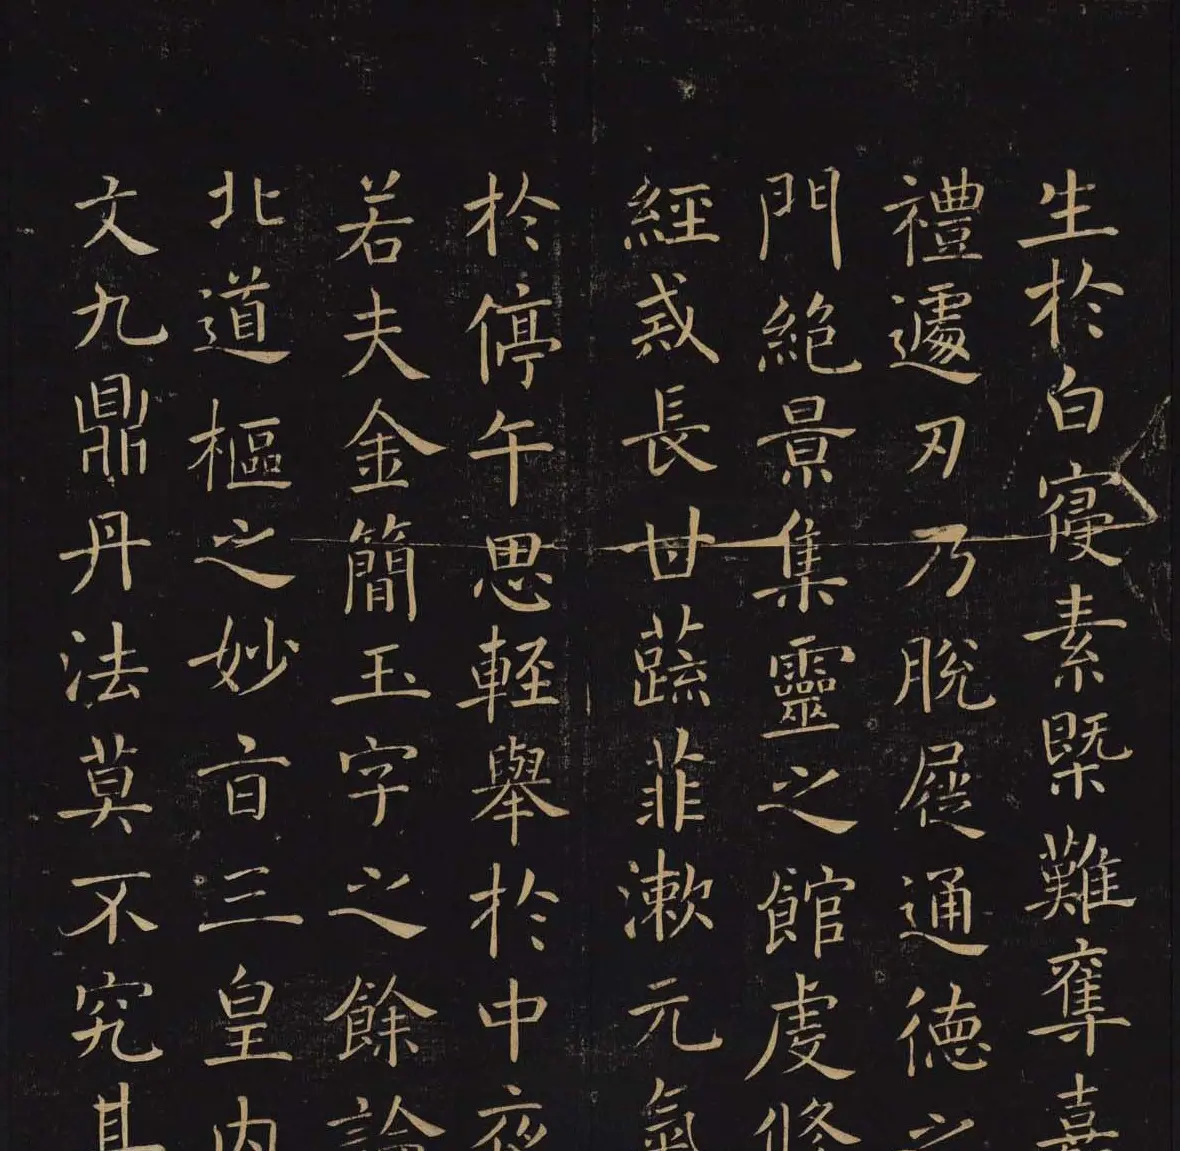 生於白寢素槩難奪喜
禮遽刃乃脫屣通德之
門絕景集靈之館虔修
經戒長甘蔬菲漱元氣
於停午思輕舉於中夜
若夫金簡玉字之餘論
北道樞之妙旨三皇內
文九鼎丹法莫不究其